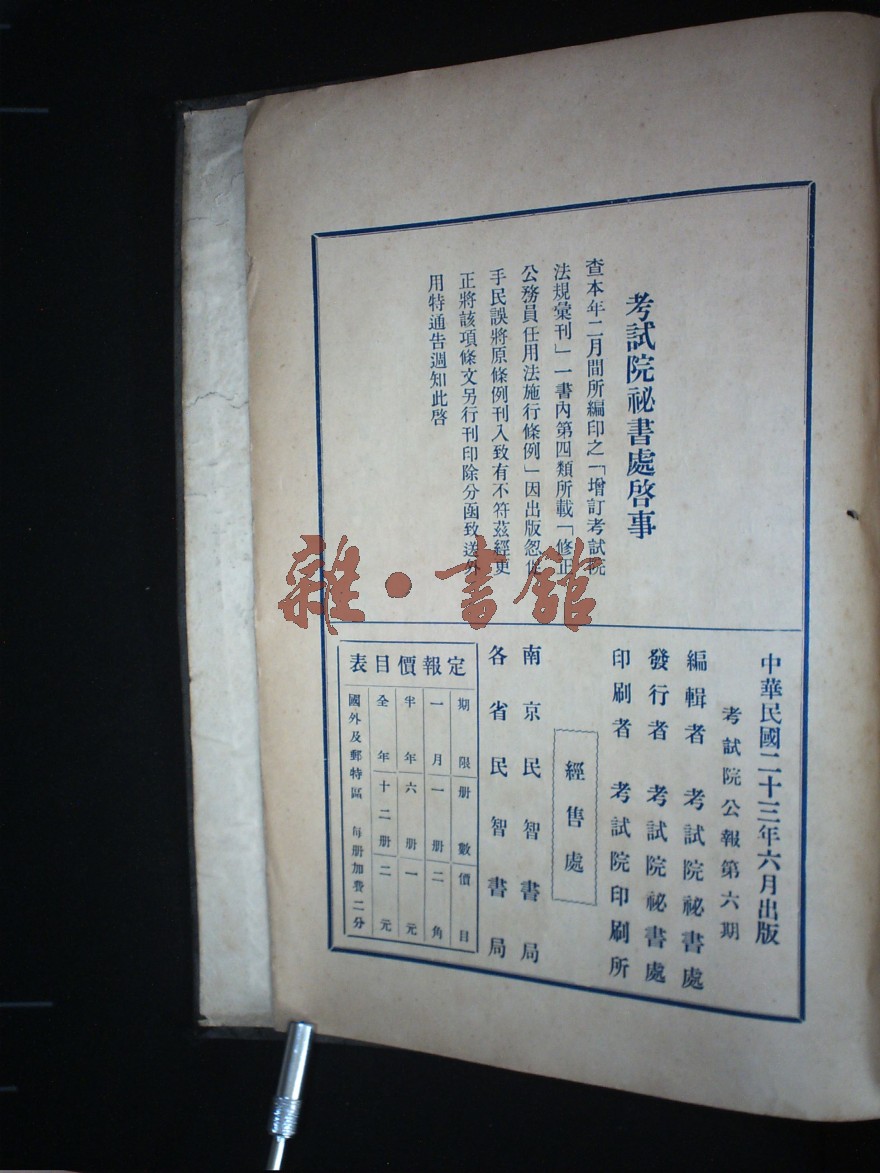 考試院祕書處啓事
查本年二月間所編印之「增訂考試院
法規彙刊」一書內第四類所載「修正
公務員任用法施行條例」因出版怱促
手民誤將原條例刊入致有不符茲經更
正將該項條文另行刊印除分函致送外
用特通告週知此啓
中華民國二十三年六月出版
考試院公報第六期
編輯者 考試院祕書處
發行者 考試院祕書處
印刷者 考試院印刷所
經售處
南京民智書局
各省民智書局
定報價目表
期限 册數 價目
一月 一册 二角
半年 六册 一元
全年 十二册 二元
國外及郵特區 每册加費二分
雜·書館